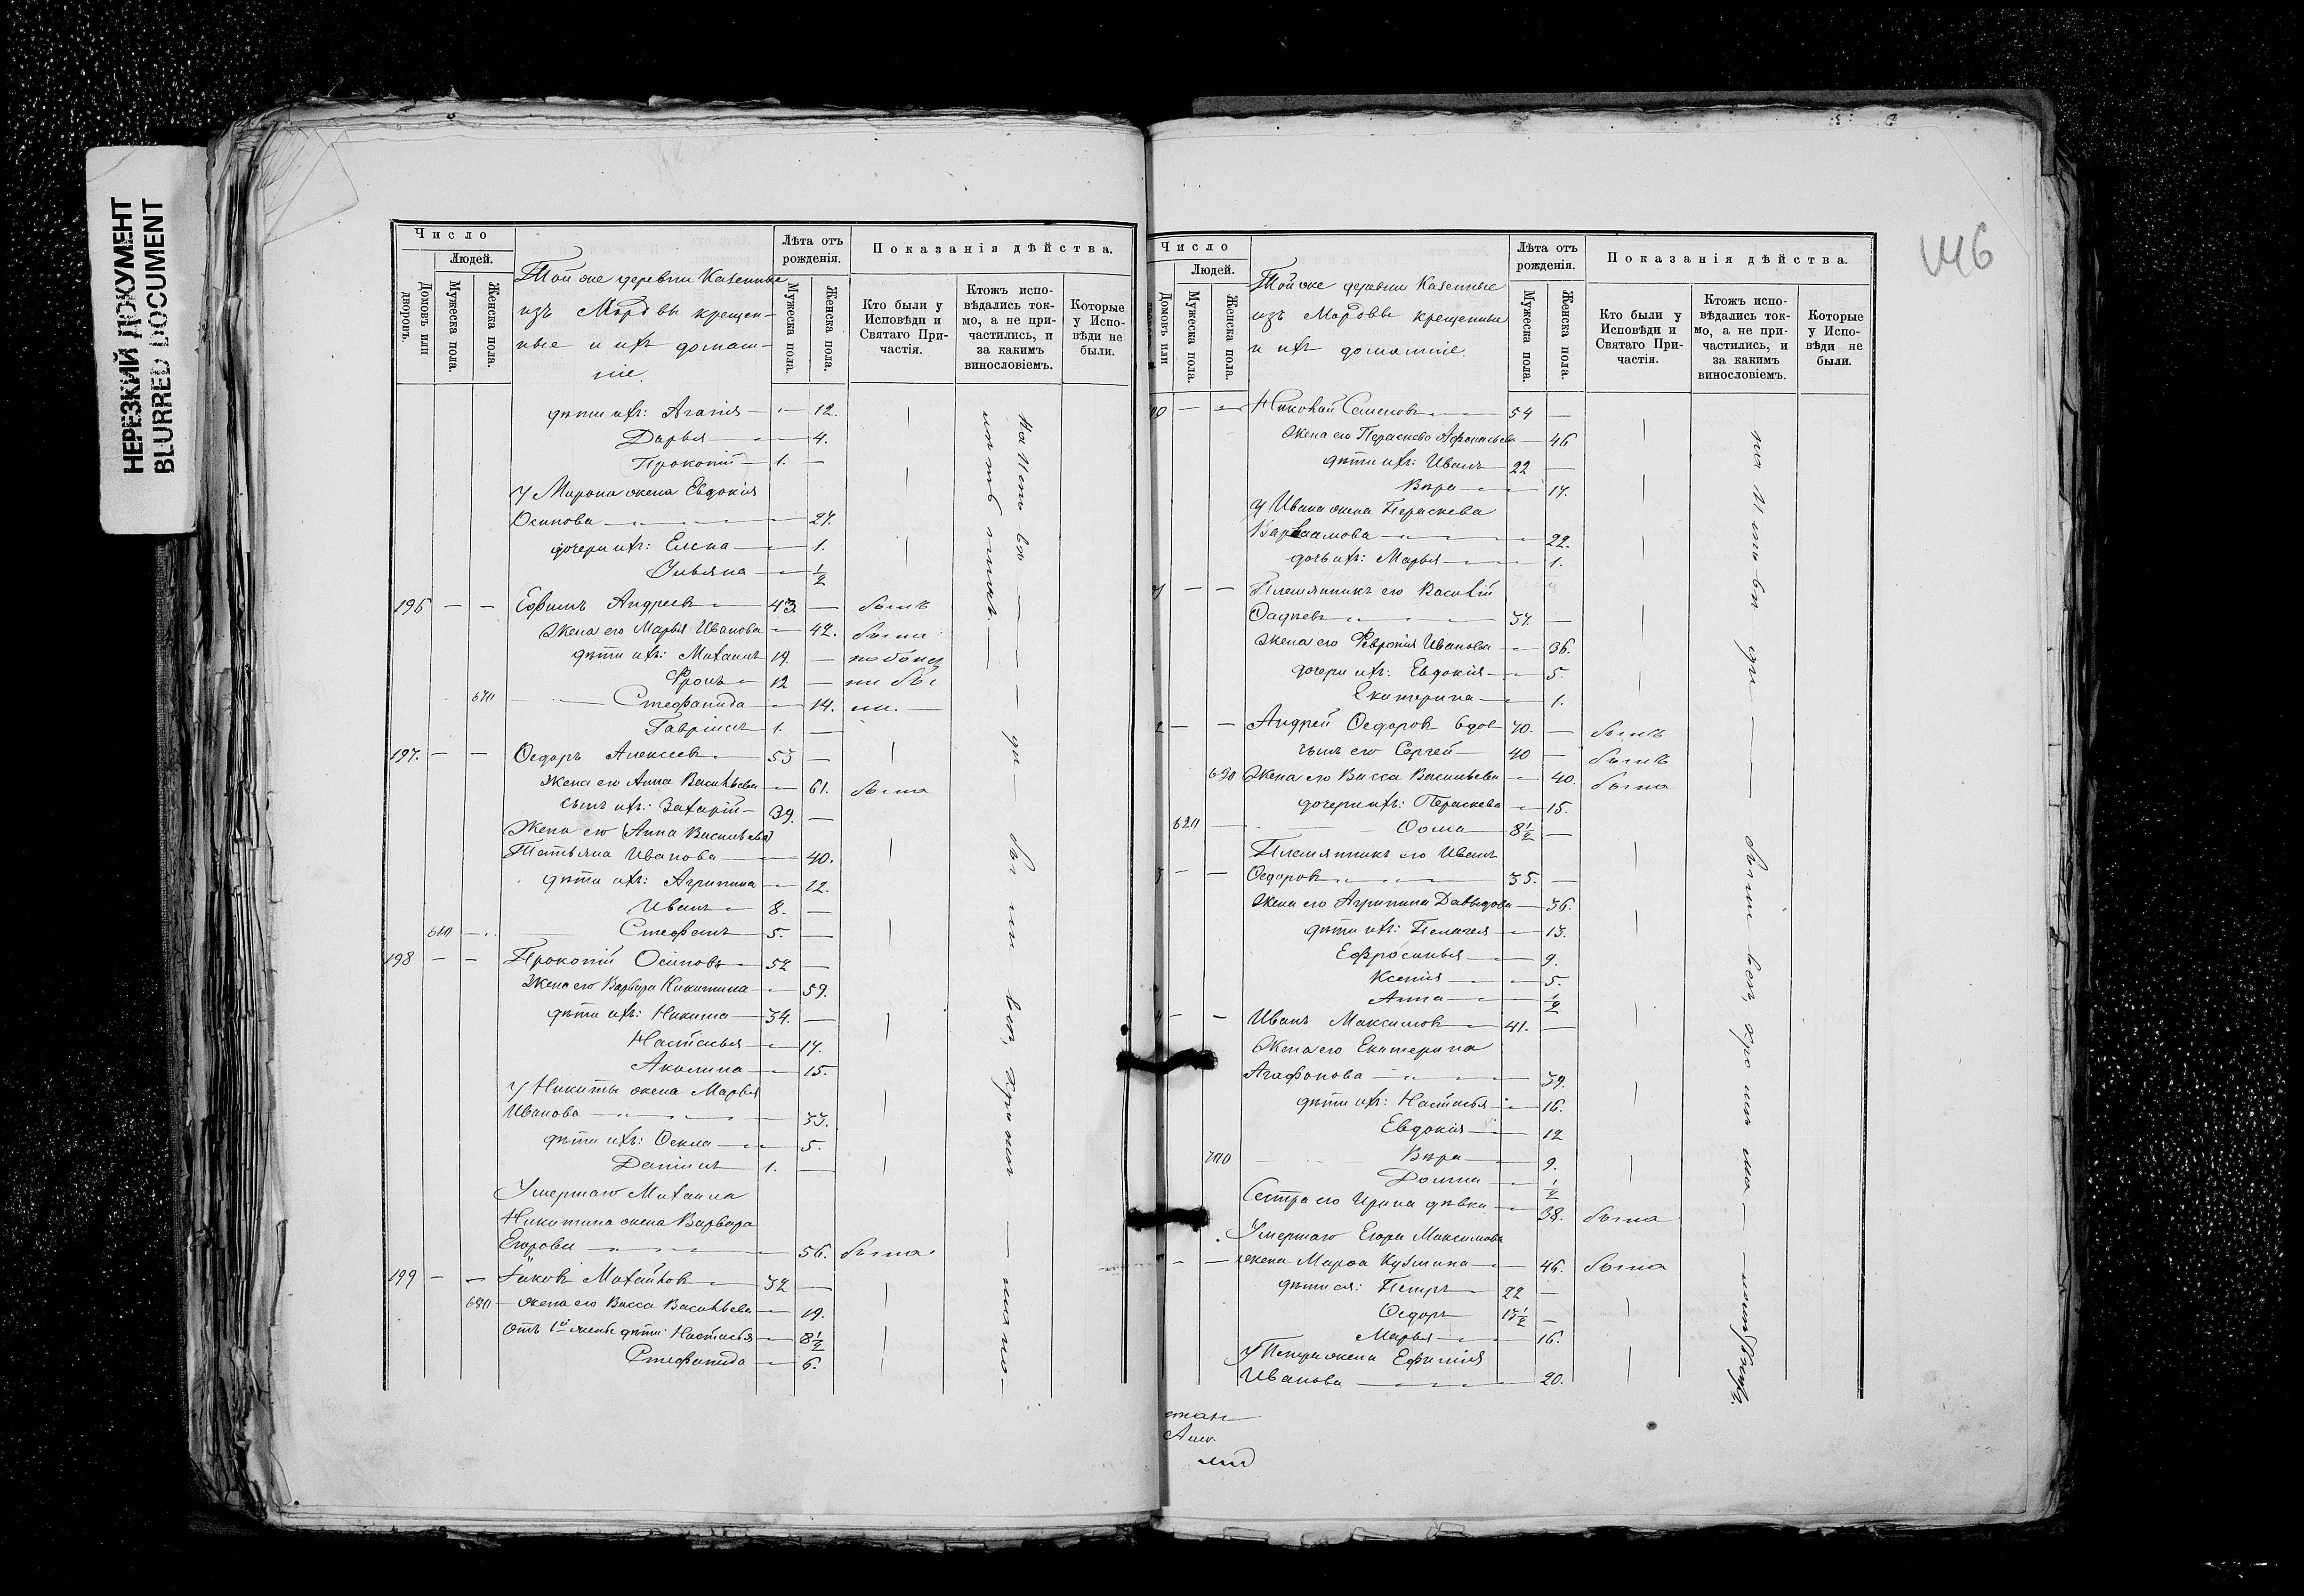 НЕРЕЗКИЙ ДОКУМЕНТ
BLURRED DOCUMENT
Число
Людей.
Домовъ или дворовъ.
Мужеска пола.
Женска пола.
Той же деревни Казенные
изъ Мордвы крещен-
ные и ихъ домаш-
ніе.
Лѣта отъ рожденія.
Мужеска пола.
Женска пола.
Показанія дѣйства.
Кто были у Исповѣди и Святаго Причастія.
Ктожъ испо-вѣдались ток-мо, а не при-частились, и за какимъ винословіемъ.
Которые у Испо-вѣди не были.
дѣти ихъ: Агапія 12.
Дарья 4.
Прокопій 1.
У Мирона жена Евдокія
Осипова 27.
дочери ихъ: Елена 1.
Ульяна ½
196 Ефимъ Андреевъ 43. былъ
Жена его Марья Иванова 42. была
дѣти ихъ: Михаилъ 19.
Фролъ 12
670 Стефанида 14.
Гавріилъ 1.
197. Ѳедоръ Алексеевъ 53
Жена его Анна Васильева 61. была
сынъ ихъ: Захарій 39.
Жена его (Анна Васильева)
Татьяна Иванова 40.
дѣти ихъ: Агрипина 12.
Иванъ 8.
610 Стефанъ 5.
198 Прокопій Осиповъ 52
Жена его Варвара Никитина 59.
дѣти ихъ: Никита 34.
Настасья 17.
Акулина 15.
У Никиты жена Марья
Иванова 33.
дѣти ихъ: Ѳекла 5.
Даніилъ 1.
Умершаго Михаила
Никитина жена Варвара
Егорова 56. была
199 Яковъ Михайловъ 32
680 жена его Васса Васильева 19.
Отъ 1й жены дѣти: Настасья 8½
Стефанида 6.
146
Число
Людей.
Домовъ или
Мужеска пола.
Женска пола.
Той же деревни Казенные
изъ Мордвы крещенные
и ихъ домашніе.
Лѣта отъ рожденія.
Мужеска пола.
Женска пола.
Показанія дѣйства.
Кто были у Исповѣди и Святаго Причастія.
Ктожъ испо-вѣдались ток-мо, а не при-частились, и за какимъ винословіемъ.
Которые у Испо-вѣди не были.
Николай Семеновъ 54
Жена его Пераскева Афонасьева 46
дѣти ихъ: Иванъ 22
Вѣра 17.
У Ивана жена Пераскева
Варлаамова 22.
дочь ихъ: Марья 1.
Племянникъ его Василій
Ѳадѣевъ 37.
Жена его Февронія Иванова 36.
дочери ихъ: Евдокія 5.
Екатерина 1.
Андрей Ѳедоровъ вдов 70. былъ
сынъ его Сергей 40 былъ
690 Жена его Васса Васильева 40. была
дочери ихъ: Пераскева 15.
620 Ѳома 8½
Племянникъ его Иванъ
Ѳедоровъ 35.
Жена его Агрипина Давыдова 36.
дѣти ихъ: Пелагея 13.
Ефросинья 9.
Ксенія 5.
Анна ½
Иванъ Максимовъ 41.
Жена его Екатерина
Агафонова 39.
дѣти ихъ: Настасья 16.
Евдокія 12
700 Вѣра 9.
Домна ½
Сестра его Ирина дѣвка 38. была
Умершаго Егора Максимова
жена Марѳа Кузмина 46. была
дѣти ея: Петръ 22
Ѳедоръ 13½
Марья 16.
У Петра жена Ефимія
Иванова 20.